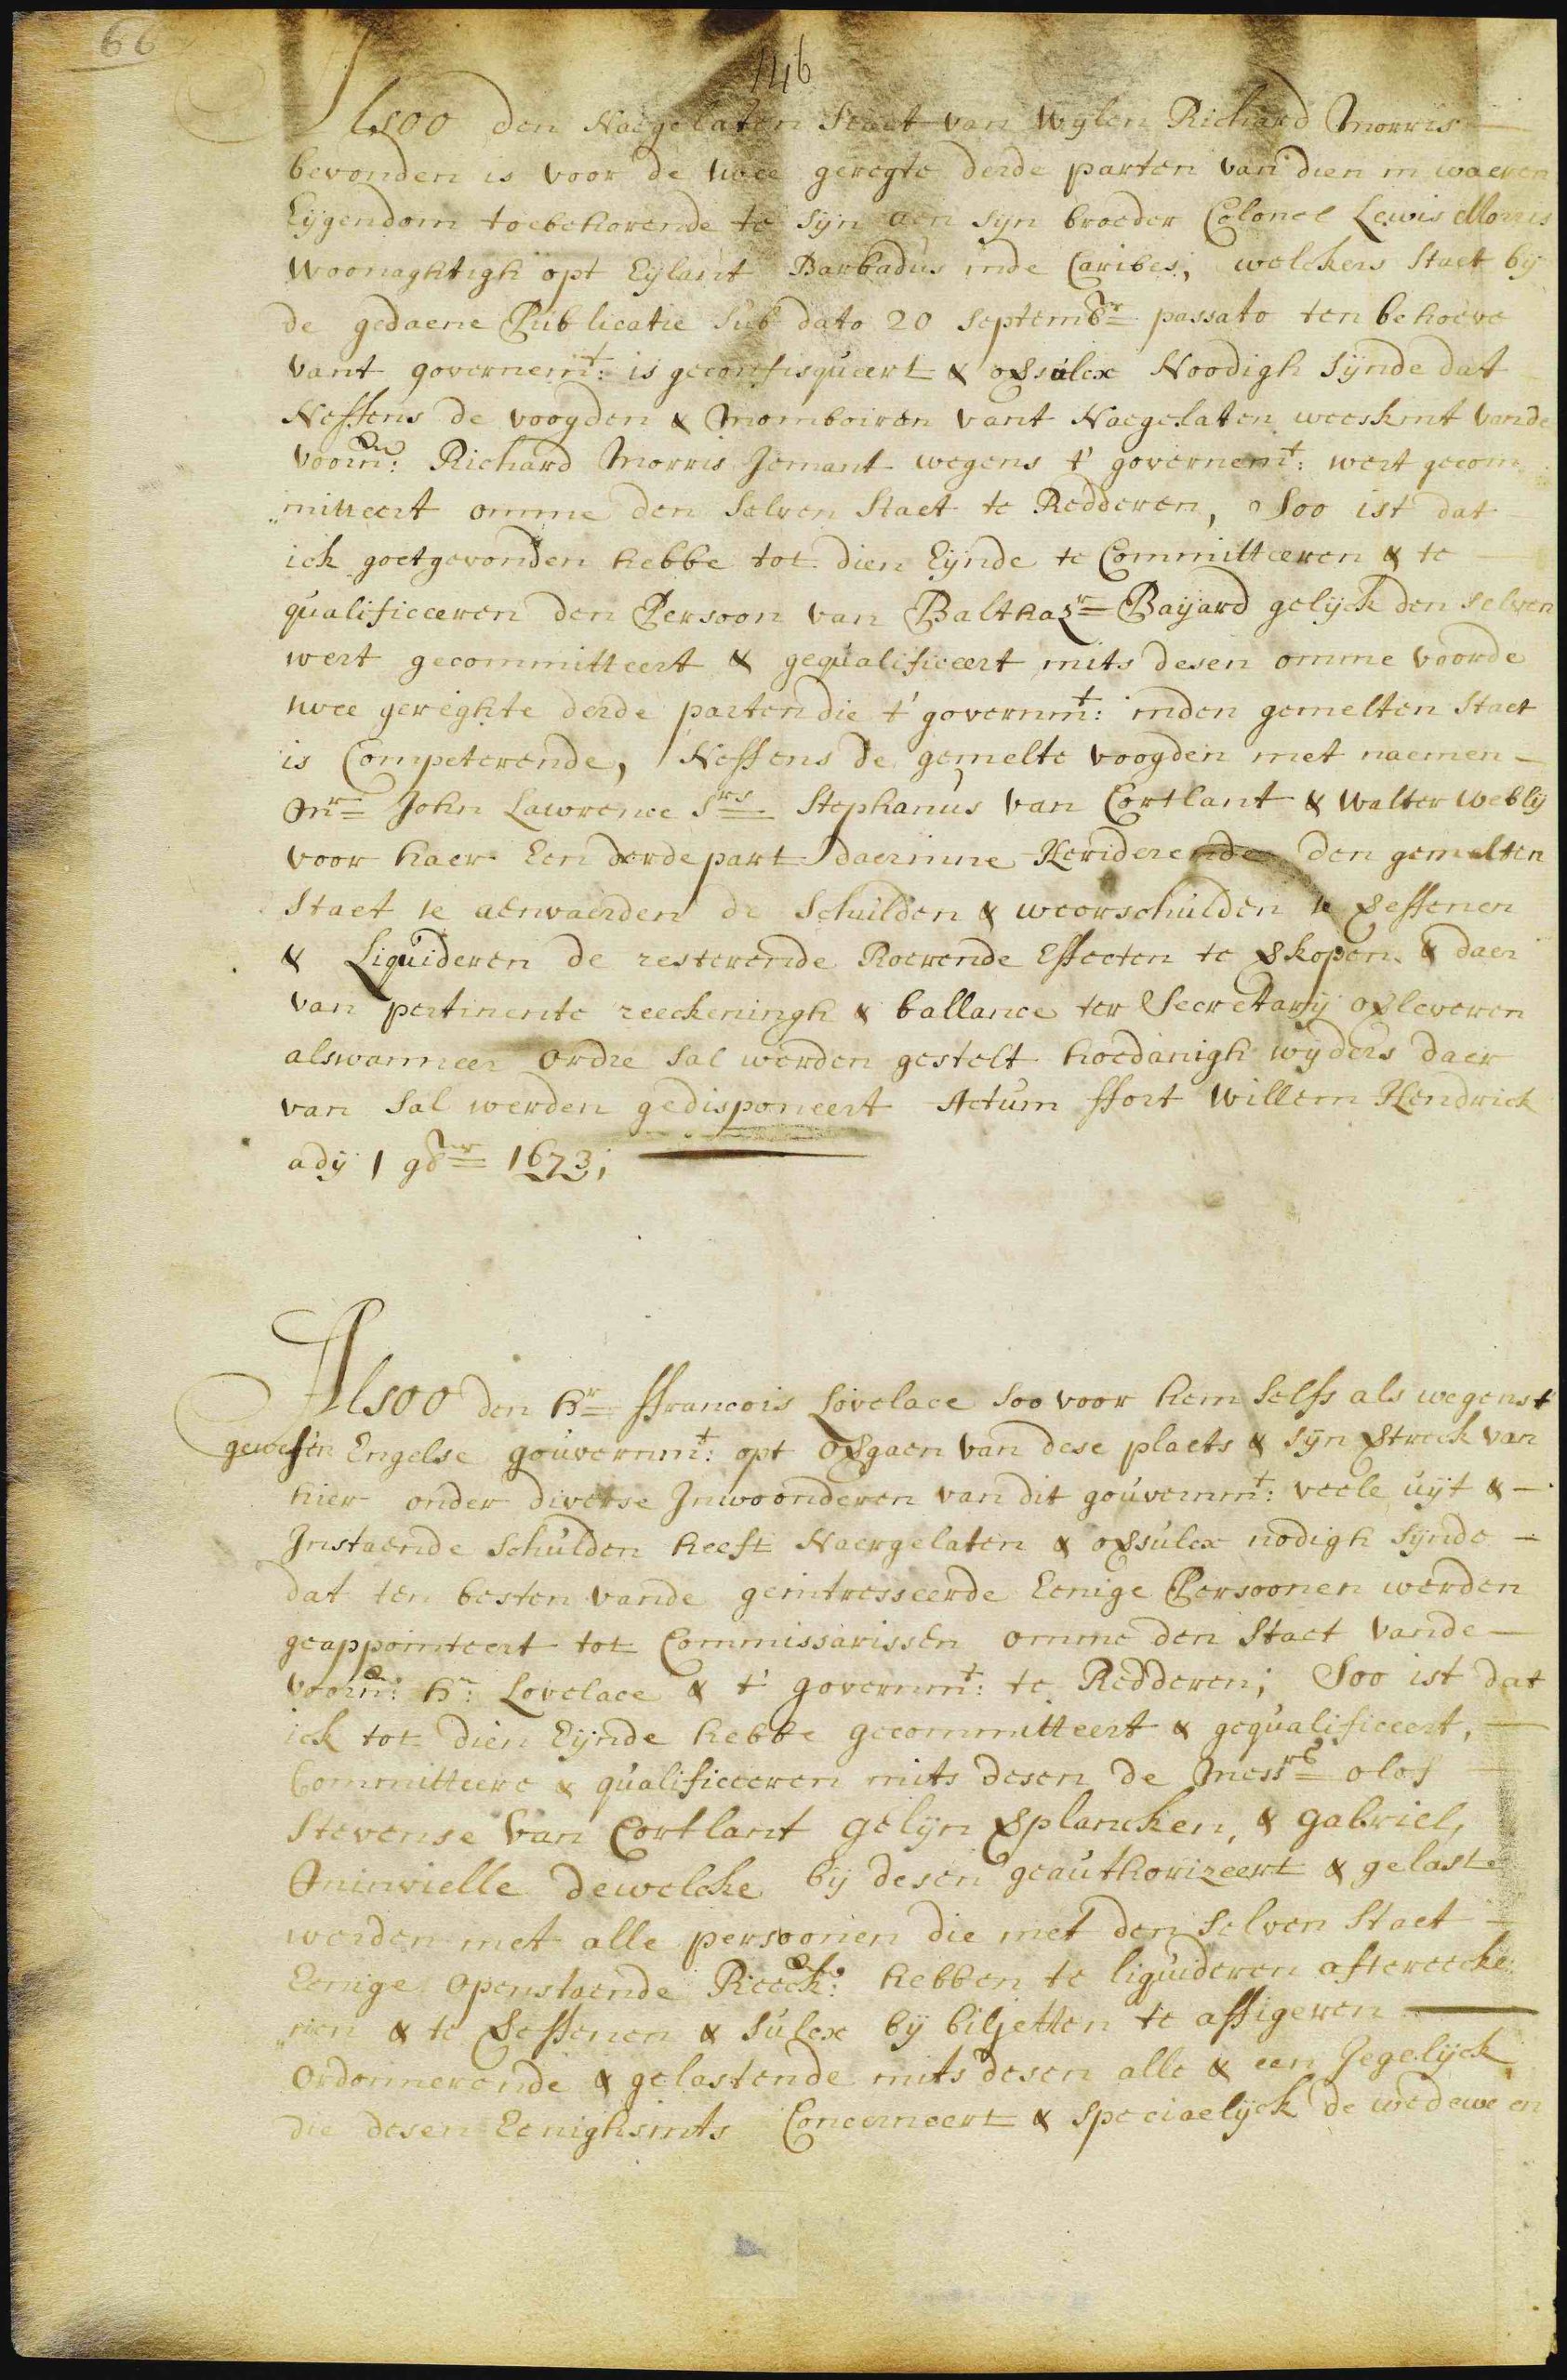 66
146
Alsoo den Naegelaten Staet van Wylen Richard Morris
bevonden is voor de twee geregte derde parten van dien in waeren
Eijgendom toebehorende te sijn aen sijn broeder Colonel Lewis Morris
Woonaghtigh opt Eijlant Barbadus inde Caribes, welckers Staet bij
de gedaene Publicatie Sub dato 20 Septembr passato ten behoeve
vant governemt: is geconfisqueert & oversulcx Noodigh sijnde dat
Neffens de voogden & Momboiren vant Naegelaten weeskint vande
voorn: Richard Morris Jemant wegens t' governemt: wert gecom
„mitteert omme den selven Staet te Redderen, Soo ist dat
ick goetgevonden hebbe tot dien Eijnde te Committeeren & te
qualificeeren den Persoon van Balthazr Baijard gelijck den selven
wert gecommitteert & gequalificeert mits desen omme voorde
twee gereghte derde parten die t' governmt: inden gemelten Staet
is Competerende, Neffens de gemelte voogden met naemen
Mr John Lawrence Srs Stephanus van Cortlant & Walter Webly
voor haer Een derde part daerinne Heriderende den gemelten
Staet te aenvaerden de Schulden & weorschulden te vereffenen
& Liquideren de resterende Roerende Effecten te verkopen & daer
van pertinente reeckeningh & ballance ter Secretarij overleveren
alswanneer ordre sal werden gestelt hoedanigh wijders daer
van Sal werden gedisponeert Actum ffort Willem Hendrick
adij 1 9br 1673;
Alsoo den hr ffrancois Lovelace soo voor hem selfs als wegens t
gewesen Engelse gouvernmt: opt overgaen van dese plaets & sijn vertreck van
hier onder diverse Inwoonderen van dit gouvernmt: veele uijt &
Instaende schulden heeft Naergelaten & oversulcx nodigh sijnde
dat ten besten vande geintresseerde Eenige Persoonen werden
geappointeert tot Commissarissen omme den Staet vande
voorn: hr: Lovelace & t' governmt: te Redderen; Soo ist dat
ick tot dien Eijnde hebbe gecommitteert & gequalificeert,
Committeere & qualificeeren mits desen de Messrs olof
Stevense van Cortlant gelijn verplancken, & gabriel
Minvielle dewelcke bij desen geauthorizeert & gelast
werden met alle persoonen die met den selven Staet
Eenige openstaende Reeck: hebben te liquideren aftereecke
„nen & te vereffenen & sulcx bij biljetten te affigeren
Ordonnerende & gelastende mits desen alle & een Jegelijck
die desen Eenighsints Concerneert & speciaelijck de wedewe en